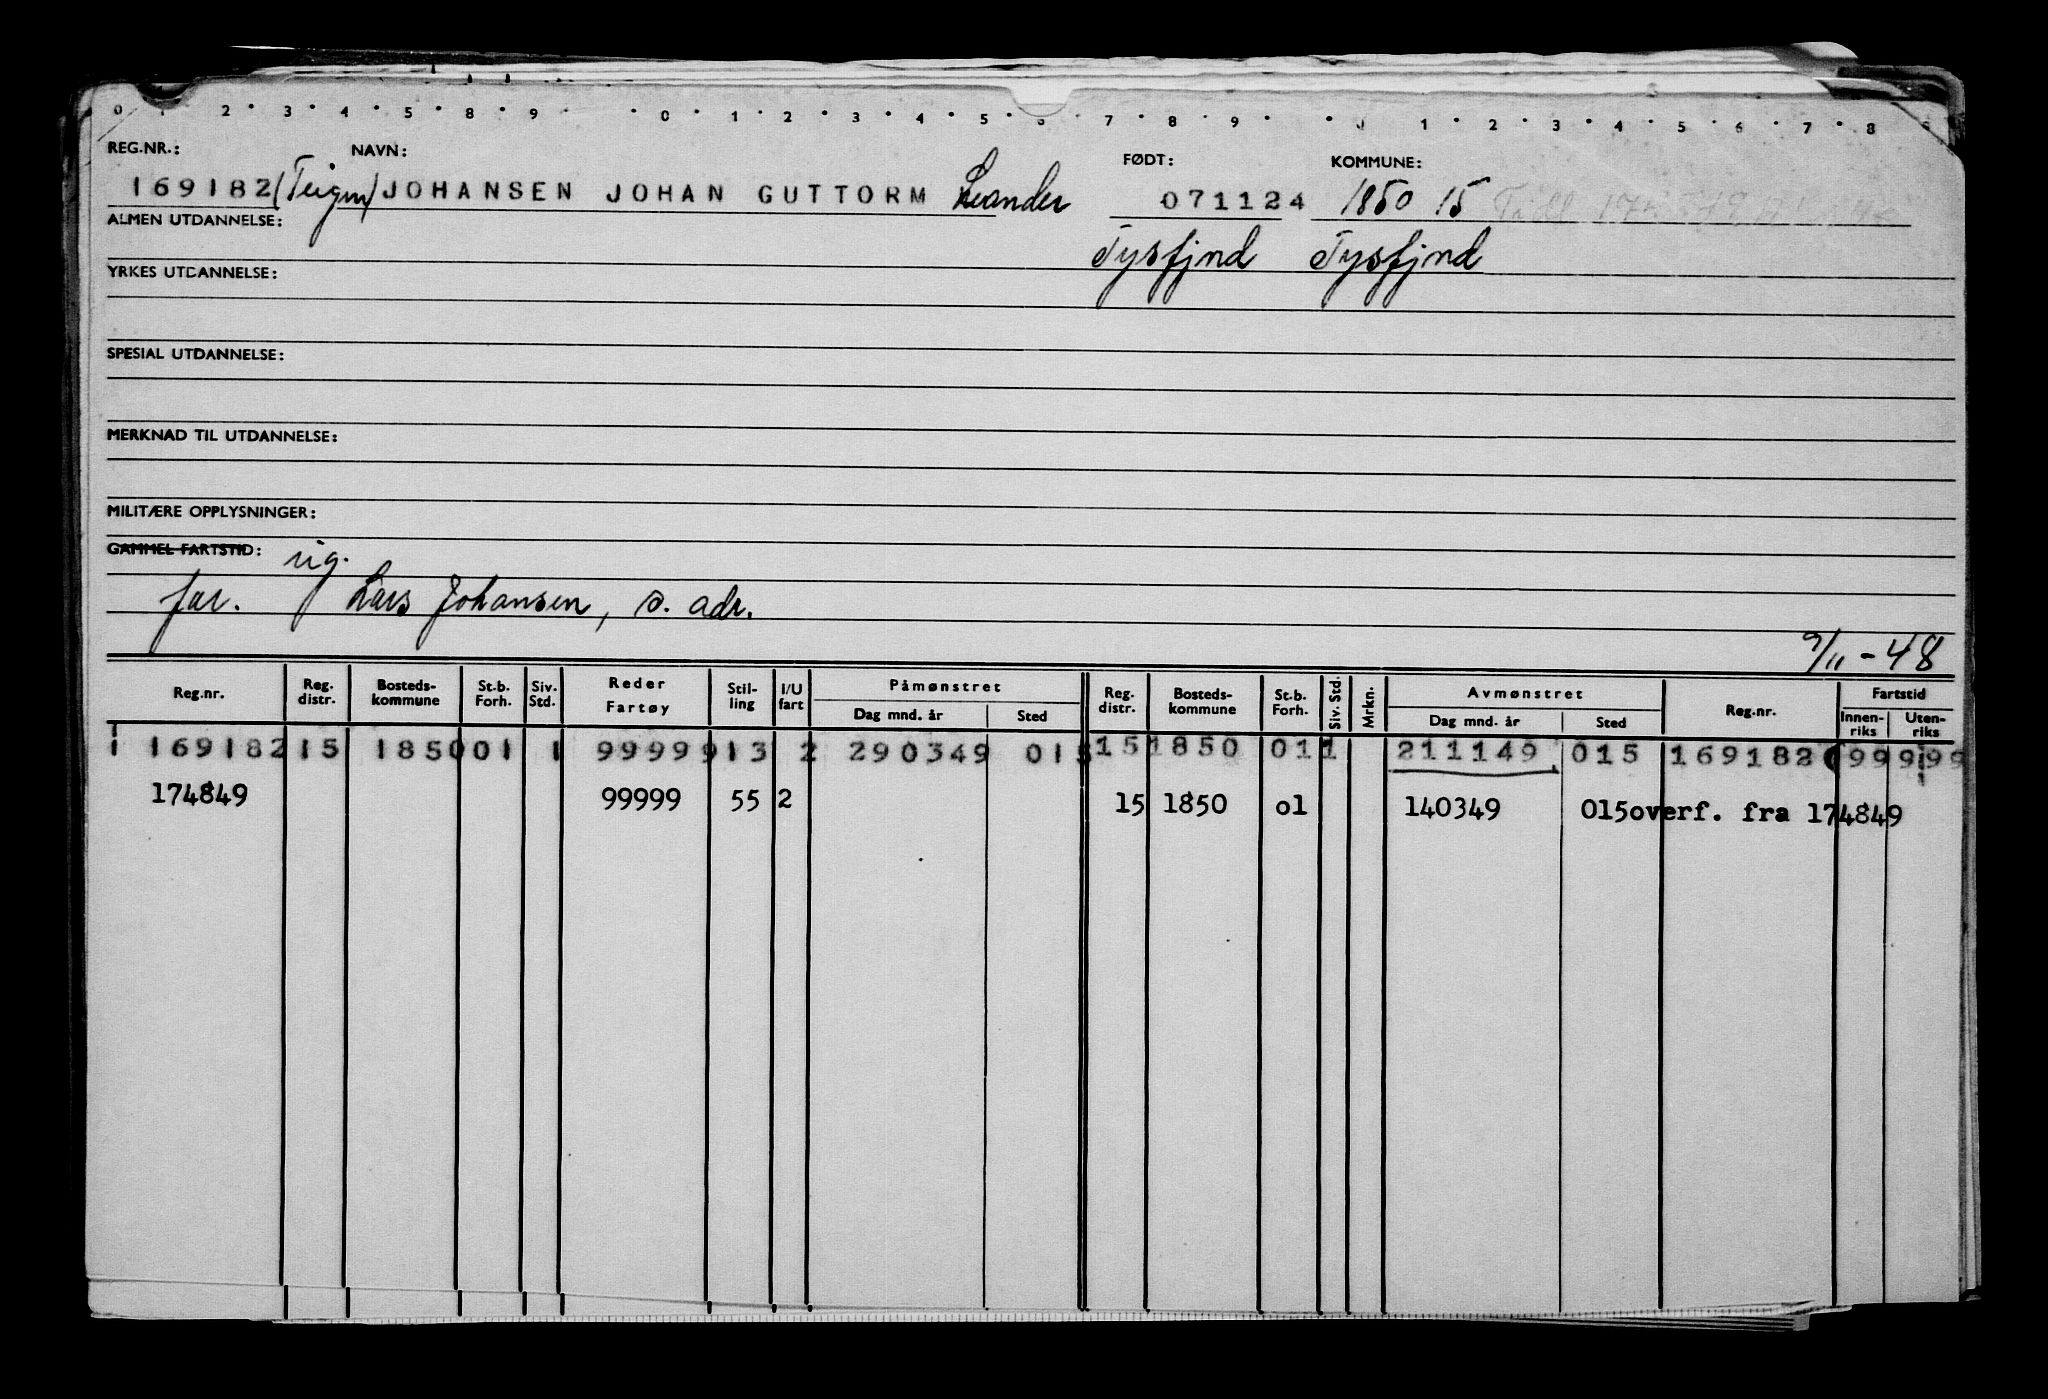 0 1 2 3 4 5 8 9 0 1 2 3 4 5 6 7 8 9 0 1 2 3 4 5 6 7 8 9
REG.NR.: NAVN: FØDT: KOMMUNE:
169182 (Teigen) JOHANSEN JOHAN GUTTORM Leander 071124 1850 15
ALMEN UTDANNELSE: Tysfjord Tysfjord
YRKES UTDANNELSE:
SPESIAL UTDANNELSE:
MERKNAD TIL UTDANNELSE:
MILITÆRE OPPLYSNINGER:
GAMMEL FARTSTID: ug.
far. Lars Johansen, s. adr.
9/11-48
Reg.nr. Reg. distr. Bosteds-kommune St.b. Forh. Siv. Std. Reder Fartøy Stil-ling I/U fart Påmønstret Dag mnd. år Sted Reg. distr. Bosteds-kommune St.b. Forh. Siv. Std. Mrkn. Avmønstret Dag mnd. år Sted Reg.nr. Fartstid Innen-riks Uten-riks
1 169182 15 1850 01 1 99999 13 2 290349 015 15 1850 01 1 211149 015 169182 99 999
174849 99999 55 2 15 1850 01 140349 015 overf. fra 174849